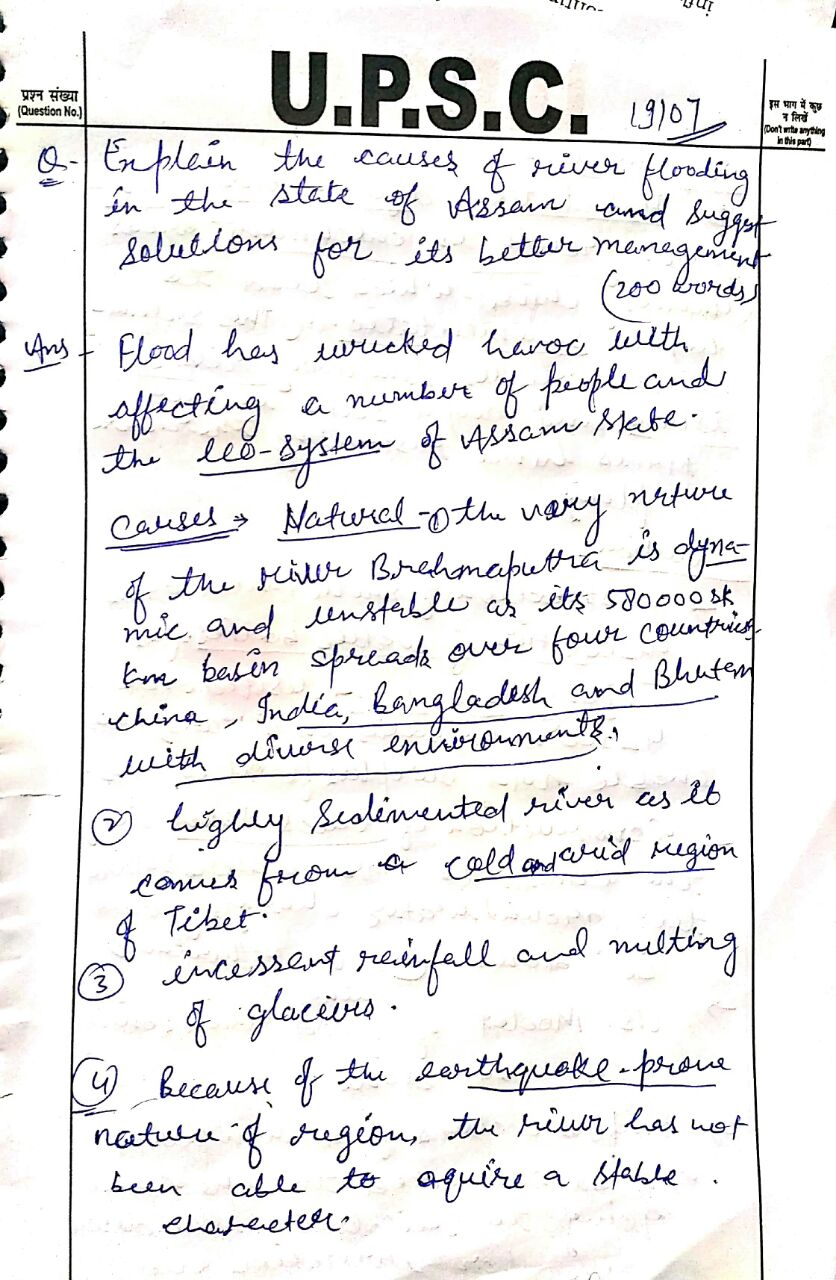 U.P.S.C.
19/07
प्रश्न संख्या
(Question No.)
इस भाग में कुछ
न लिखें
(Don't write anything
in this part)
Q- Explain the causes of river flooding
in the state of Assam and suggest
solutions for its better management
(200 words)
Ans - Flood has wrecked havoc with
affecting a number of people and
the eco-system of Assam state.
Causes → Natural - ① the very nature
of the river Brahmaputra is dyna-
mic and unstable as its 580000 sk
km basin spreads over four countries
china, India, Bangladesh and Bhutan
with diverse environments.
② highly sedimented river as it
comes from a cold and arid region
of Tibet.
③ incessent rainfall and melting
of glaciers.
④ Because of the earthquake-prone
nature of region, the river has not
been able to aquire a stable
character.